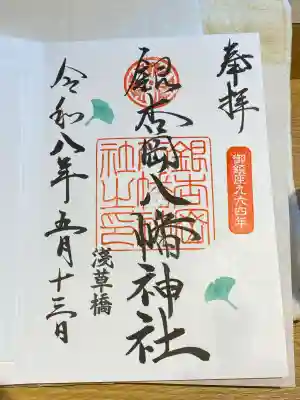 奉拝
御鎮座九六四年
銀杏岡八幡神社
浅草橋
令和八年五月十三日